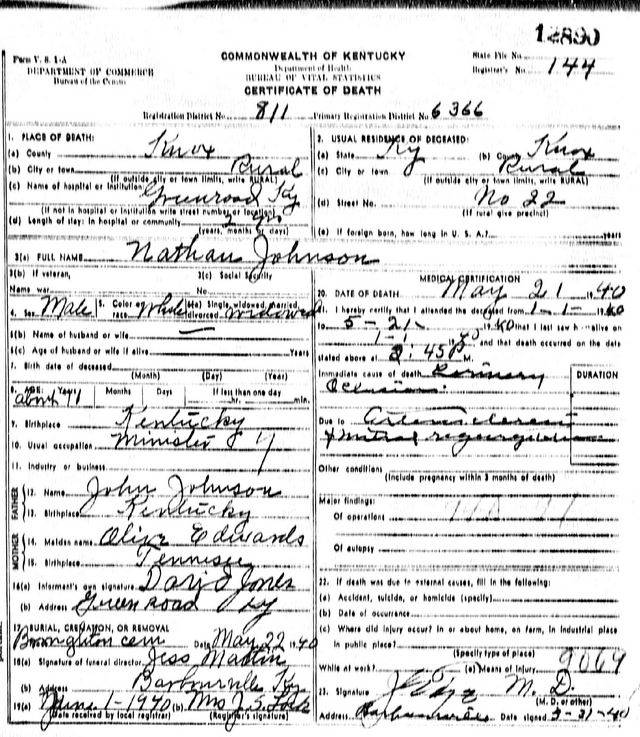 12890
Form V. S. 1-A
DEPARTMENT OF COMMERCE
Bureau of the Census
COMMONWEALTH OF KENTUCKY
Department of Health
BUREAU OF VITAL STATISTICS
CERTIFICATE OF DEATH
State File No.
Registrar's No. 144
Registration District No. 811 Primary Registration District No. 6366
1. PLACE OF DEATH:
(a) County Knox
(b) City or town Rural
(If outside city or town limits, write RURAL)
(c) Name of hospital or institution Greenroad Ky
(If not in hospital or institution write street number or location)
(d) Length of stay: In hospital or community
(years, months or days)
2. USUAL RESIDENCE OF DECEASED:
(a) State Ky (b) County Knox
(c) City or town Rural
(If outside city or town limits, write RURAL)
(d) Street No. No 22
(If rural give precinct)
(e) If foreign born, how long in U. S. A.? years
3(a) FULL NAME Nathan Johnson
3(b) If veteran, 3(c) Social Security
Name war No.
4. Sex Male 5. Color or race White 6(a) Single, widowed, married, divorced widowed
6(b) Name of husband or wife
6(c) Age of husband or wife if alive Years
7. Birth date of deceased
(Month) (Day) (Year)
8. AGE: Years Months Days If less than one day
about 77 hr. min.
9. Birthplace Kentucky
10. Usual occupation Minister
11. Industry or business
FATHER
12. Name John Johnson
13. Birthplace Kentucky
MOTHER
14. Maiden name Olive Edwards
15. Birthplace Tennessee
16(a) Informant's own signature David Jones
(b) Address Green road Ky
17. BURIAL, CREMATION, OR REMOVAL
cem Date May 22 1940
18(a) Signature of funeral director Jess Martin
(b) Address Barbourville Ky
19(a) June 1-1940 (b) Mrs J. S.
(Date received by local registrar) (Registrar's signature)
MEDICAL CERTIFICATION
20. DATE OF DEATH May 21 1940
21. I hereby certify that I attended the deceased from 1-1- 1940
to 5-21- 1940 that I last saw h alive on
1-1 1940 and that death occurred on the date
stated above at 2:45 P M.
Immediate cause of death Coronary
Occlusion.
DURATION
Due to Arteriosclerosis
+ mitral regurgitation
Other conditions
(Include pregnancy within 3 months of death)
Major findings:
Of operations
Of autopsy
22. If death was due to external causes, fill in the following:
(a) Accident, suicide, or homicide (specify)
(b) Date of occurrence
(c) Where did injury occur? In or about home, on farm, in industrial place
in public place?
(Specify type of place)
While at work? (e) Means of injury 9069
23. Signature M. D.
(M. D. or other)
Address Barbourville Date signed 5-31-40